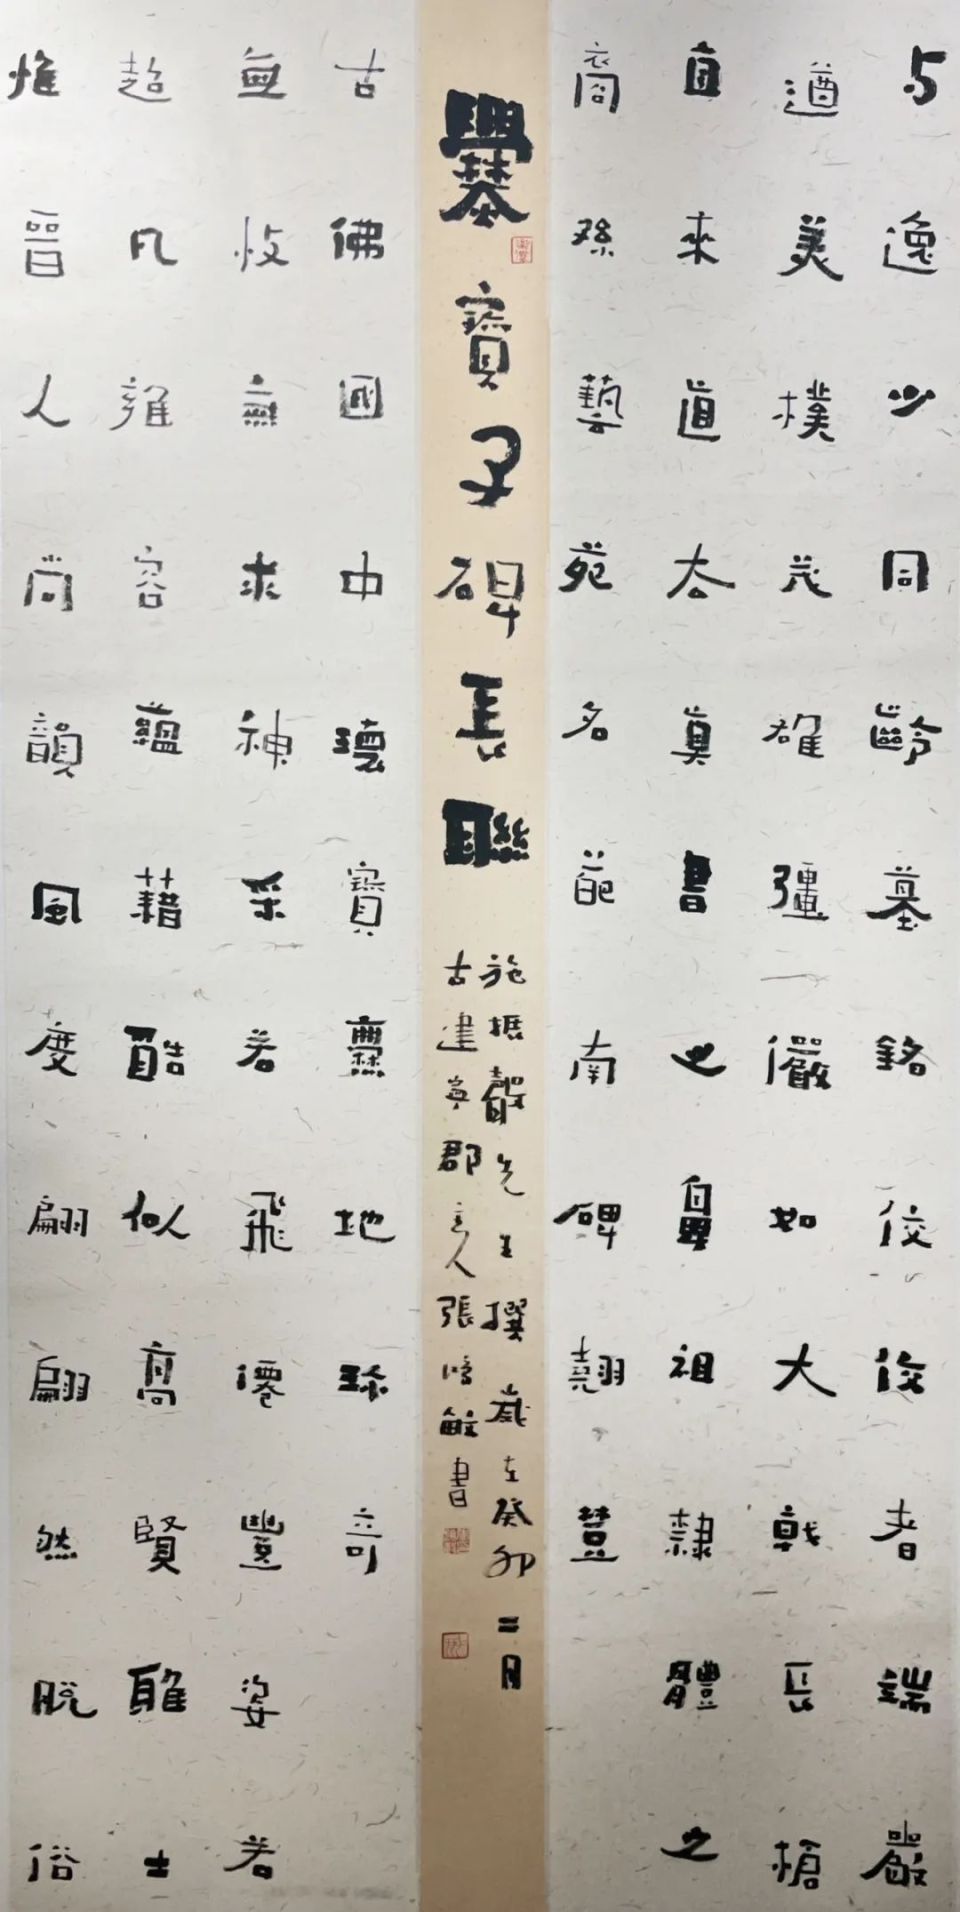 与逸少同齡墓銘佼佼者端嚴
遒美樸茂雄彊儼如大戟長槍
直來直去真書也鼻祖隸體之
裔孫藝苑名葩南碑翹楚
爨寶子碑長聯
施振聲先生撰歲在癸卯二月
古建寧郡主人張鴻敏書
古佛國中瓌寶爨地珍奇
無忮無求神采若飛僊豐姿若
超凡雍容蘊藉酷似高賢雅士
惟晉人尚韻風度翩翩然脫俗